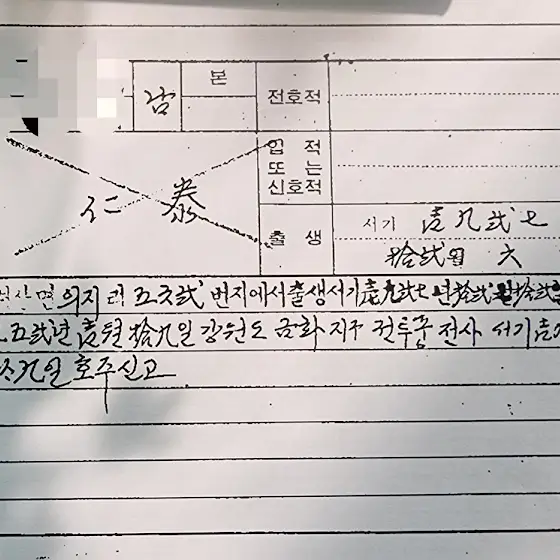 남 본 전호적
입적 또는 신호적
仁 泰
출생 서기 壹九貳七
拾貳월 六
산면 의지리 五三貳 번지에서 출생 서기 壹九貳七년 拾貳월 拾貳
五貳년 壹월 拾九일 강원도 금화지구 전투중 전사 서기 壹
九일 호주신고